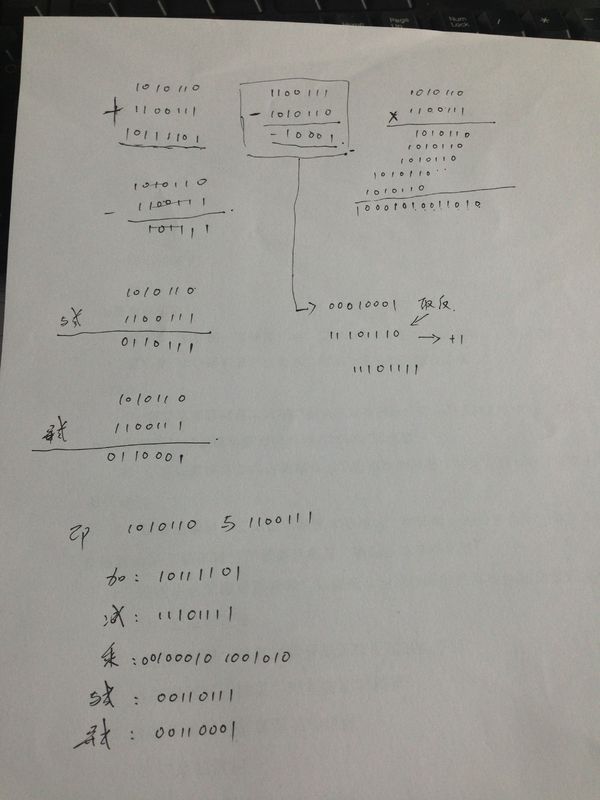 Page Up
Num Lock
/
*
-
1010110
+ 1100111
10111101
1100111
- 1010110
- 10001
1010110
× 1100111
1010110
1010110
1010110
1010110
1010110
10001010011010
1010110
- 1100111
101111
1010110
与或 1100111
0110111
00010001 取反
11101110 → +1
11101111
1010110
异或 1100111
0110001
即 1010110 与 1100111
加: 10111101
减: 11101111
乘: 00100010 1001010
与或: 00110111
异或: 00110001